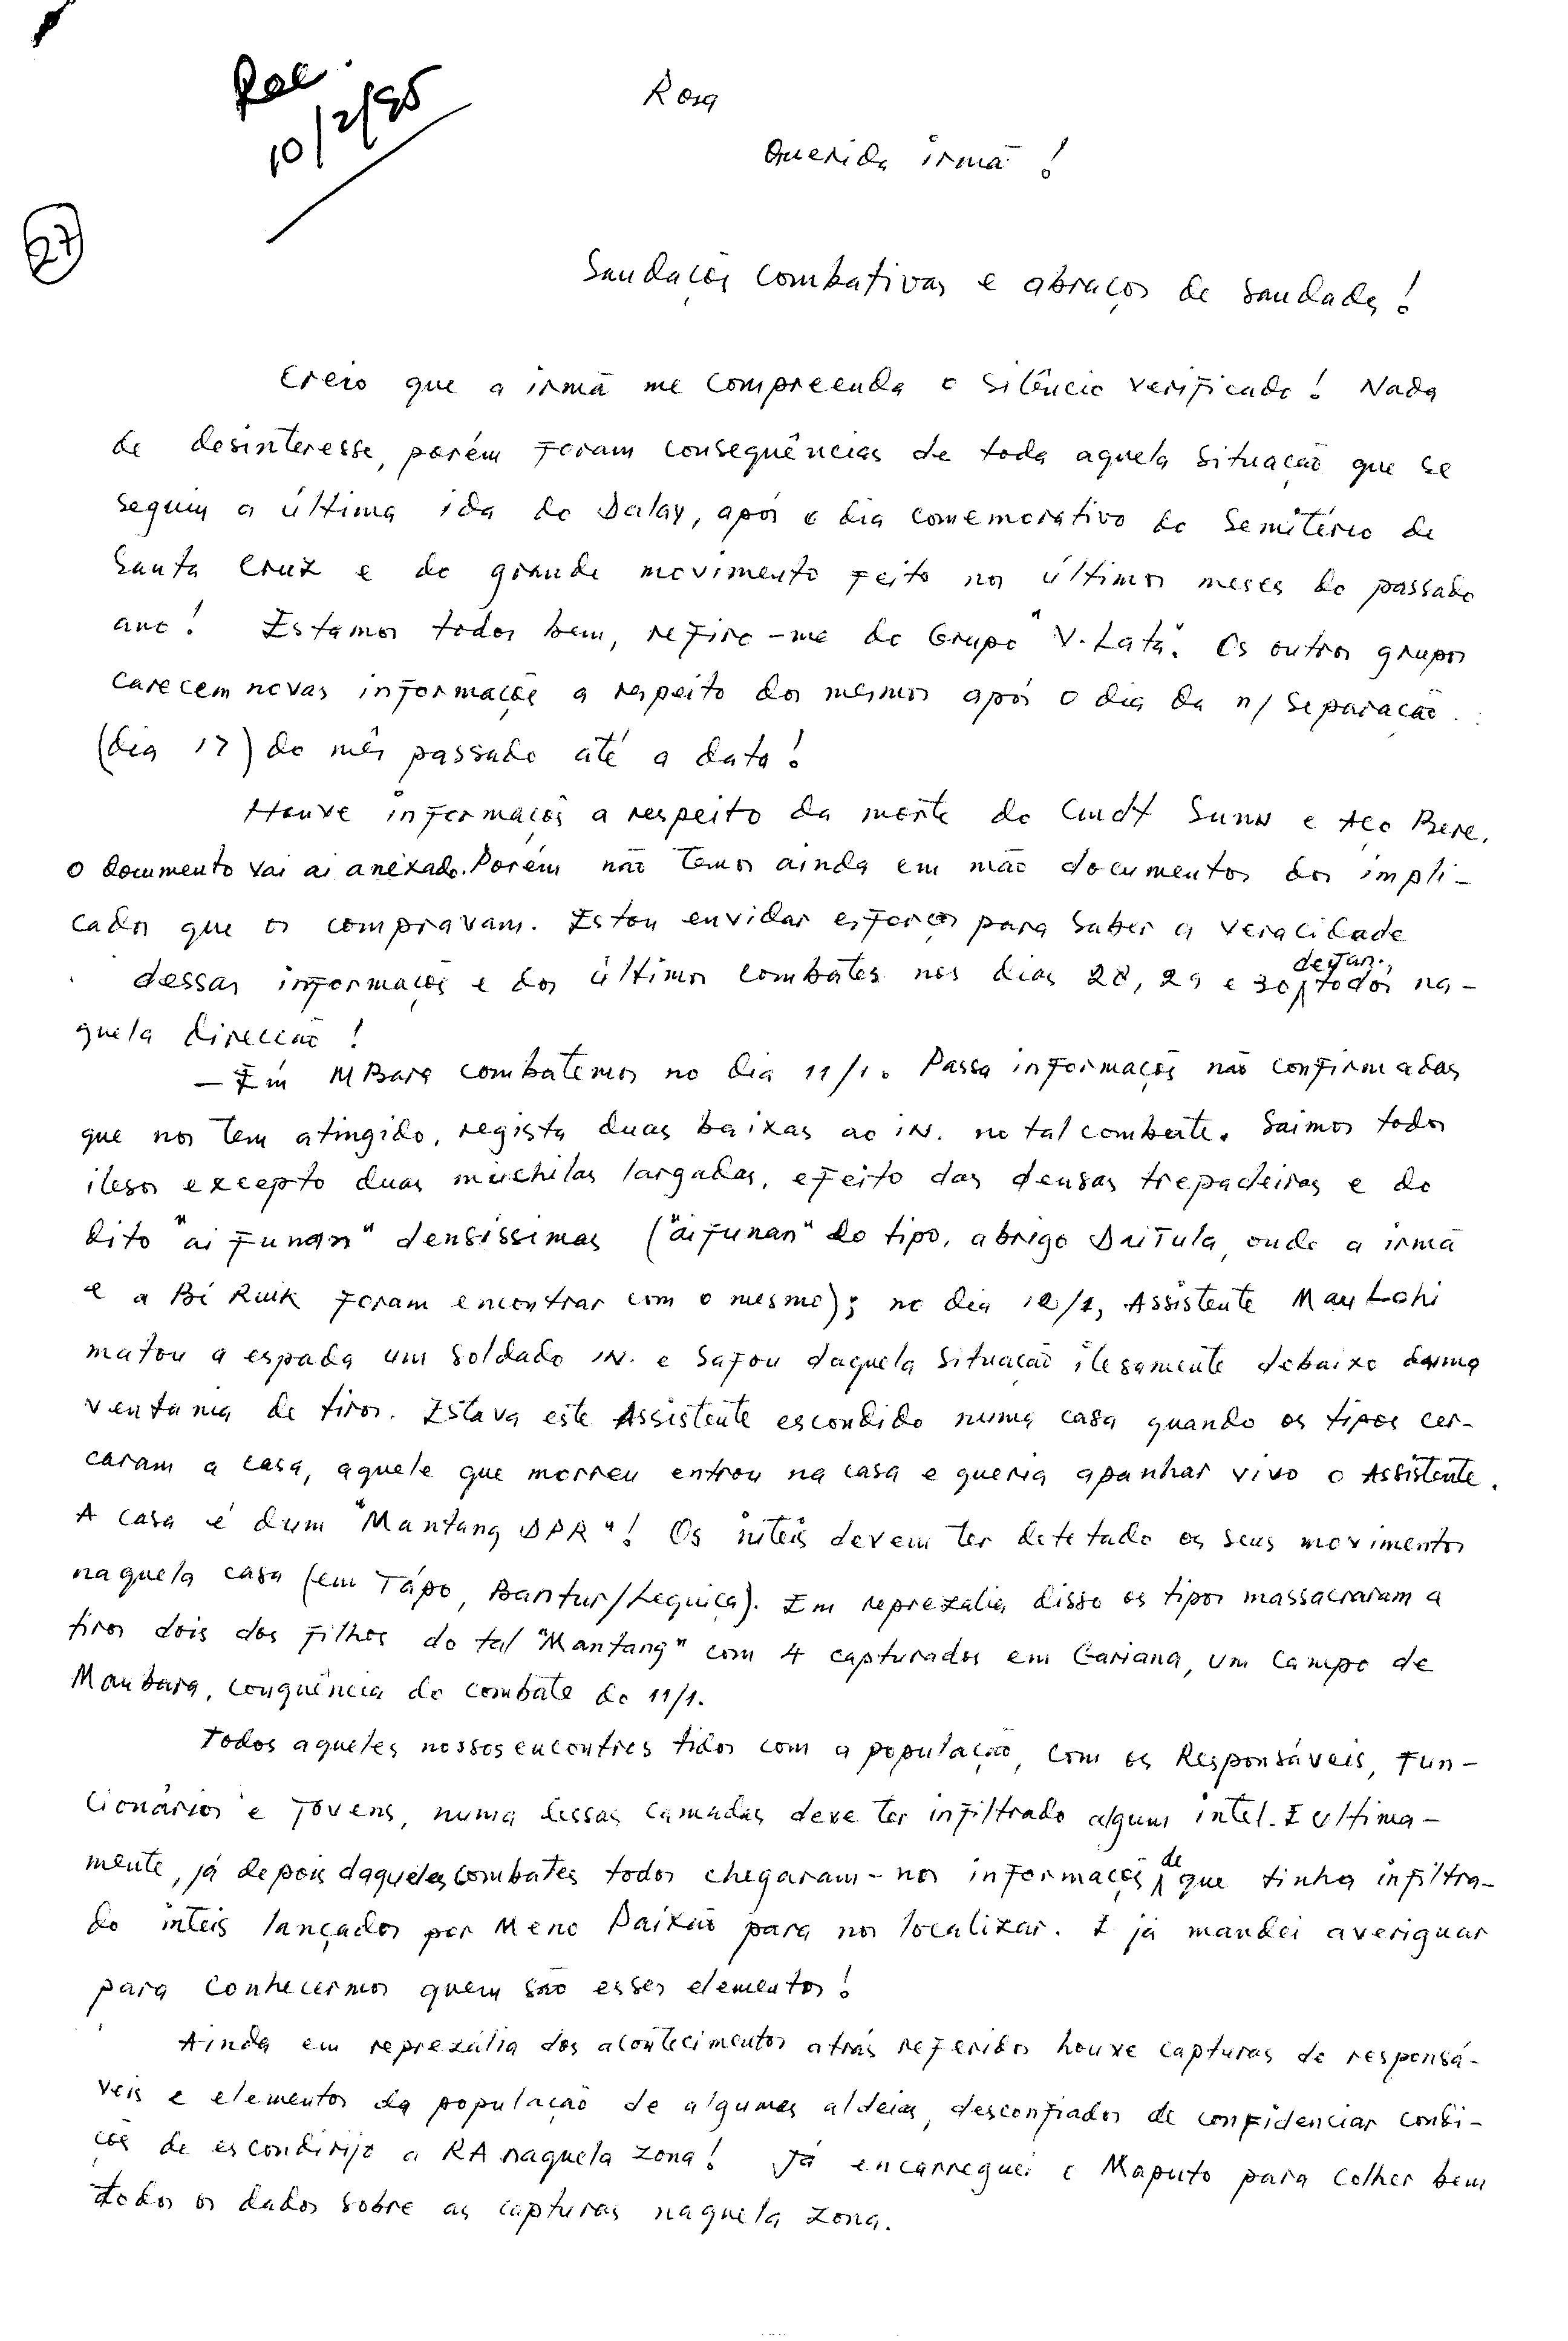 Rec.
10/2/95
27
Rosa
Querida irmã!
Saudações combativas e abraços de saudade!
Creio que a irmã me compreenda o silêncio verificado! Nada
de desinteresse, porém foram consequências de toda aquela situação que se
seguiu a última ida do Dalay, após o dia comemorativo do Semitério de
Santa Cruz e do grande movimento feito nos últimos meses do passado
ano! Estamos todos bem, refiro-me do Grupo "V. Lata". Os outros grupos
carecem novas informações a respeito dos mesmos após o dia da n/ separação
(dia 17) do mês passado até a data!
Houve informações a respeito da morte do Cmdt Sunu e Aço Bere,
o documento vai aí anexado. Porém não temos ainda em mão documentos dos impli-
cados que os compravam. Estou envidar esforços para saber a veracidade
dessas informações e dos últimos combates nos dias 28, 29 e 30 de Jan., todos na-
quela direcção!
— Em MBara combatemos no dia 11/1. Passa informações não confirmadas
que nos tem atingido, regista duas baixas ao IN. no tal combate. Saimos todos
ilesos excepto duas muchilas largadas, efeito das densas trepadeiras e do
dito "ai funan" densíssimas ("ai funan" do tipo, abrigo DaiTula, onde a irmã
e a Bi Ruik foram encontrar com o mesmo); no dia 12/1, Assistente Mau Lohi
matou a espada um soldado IN. e safou daquela situação ilesamente debaixo duma
ventania de tiros. Estava este Assistente escondido numa casa quando os tipos cer-
caram a casa, aquele que morreu entrou na casa e queria apanhar vivo o Assistente.
A casa é dum "Mantang DPR"! Os inteis devem ter detetado os seus movimentos
naquela casa (em Tápo, Bantur/Lequiça). Em reprezalia disso os tipos massacraram a
tiros dois dos filhos do tal "Mantang" com 4 capturados em Cariana, um campo de
Maubara, conquência do combate do 11/1.
Todos aqueles nossos encontros tidos com a população, com os Responsáveis, Fun-
cionários e Jovens, numa dessas camadas deve ter infiltrado alguns intel. E ultima-
mente, já depois daqueles combates todos chegaram-nos informações de que tinha infiltra-
do inteis lançados por Meno Paixão para nos localizar. E já mandei averiguar
para conhecermos quem são esses elementos!
Ainda em reprezália dos acontecimentos atrás referidos houve capturas de responsá-
veis e elementos da população de algumas aldeias, desconfiados de confidenciar condi-
ções de escondirijo a RA naquela zona! Já encarreguei o Maputo para colher bem
todos os dados sobre as capturas naquela zona.